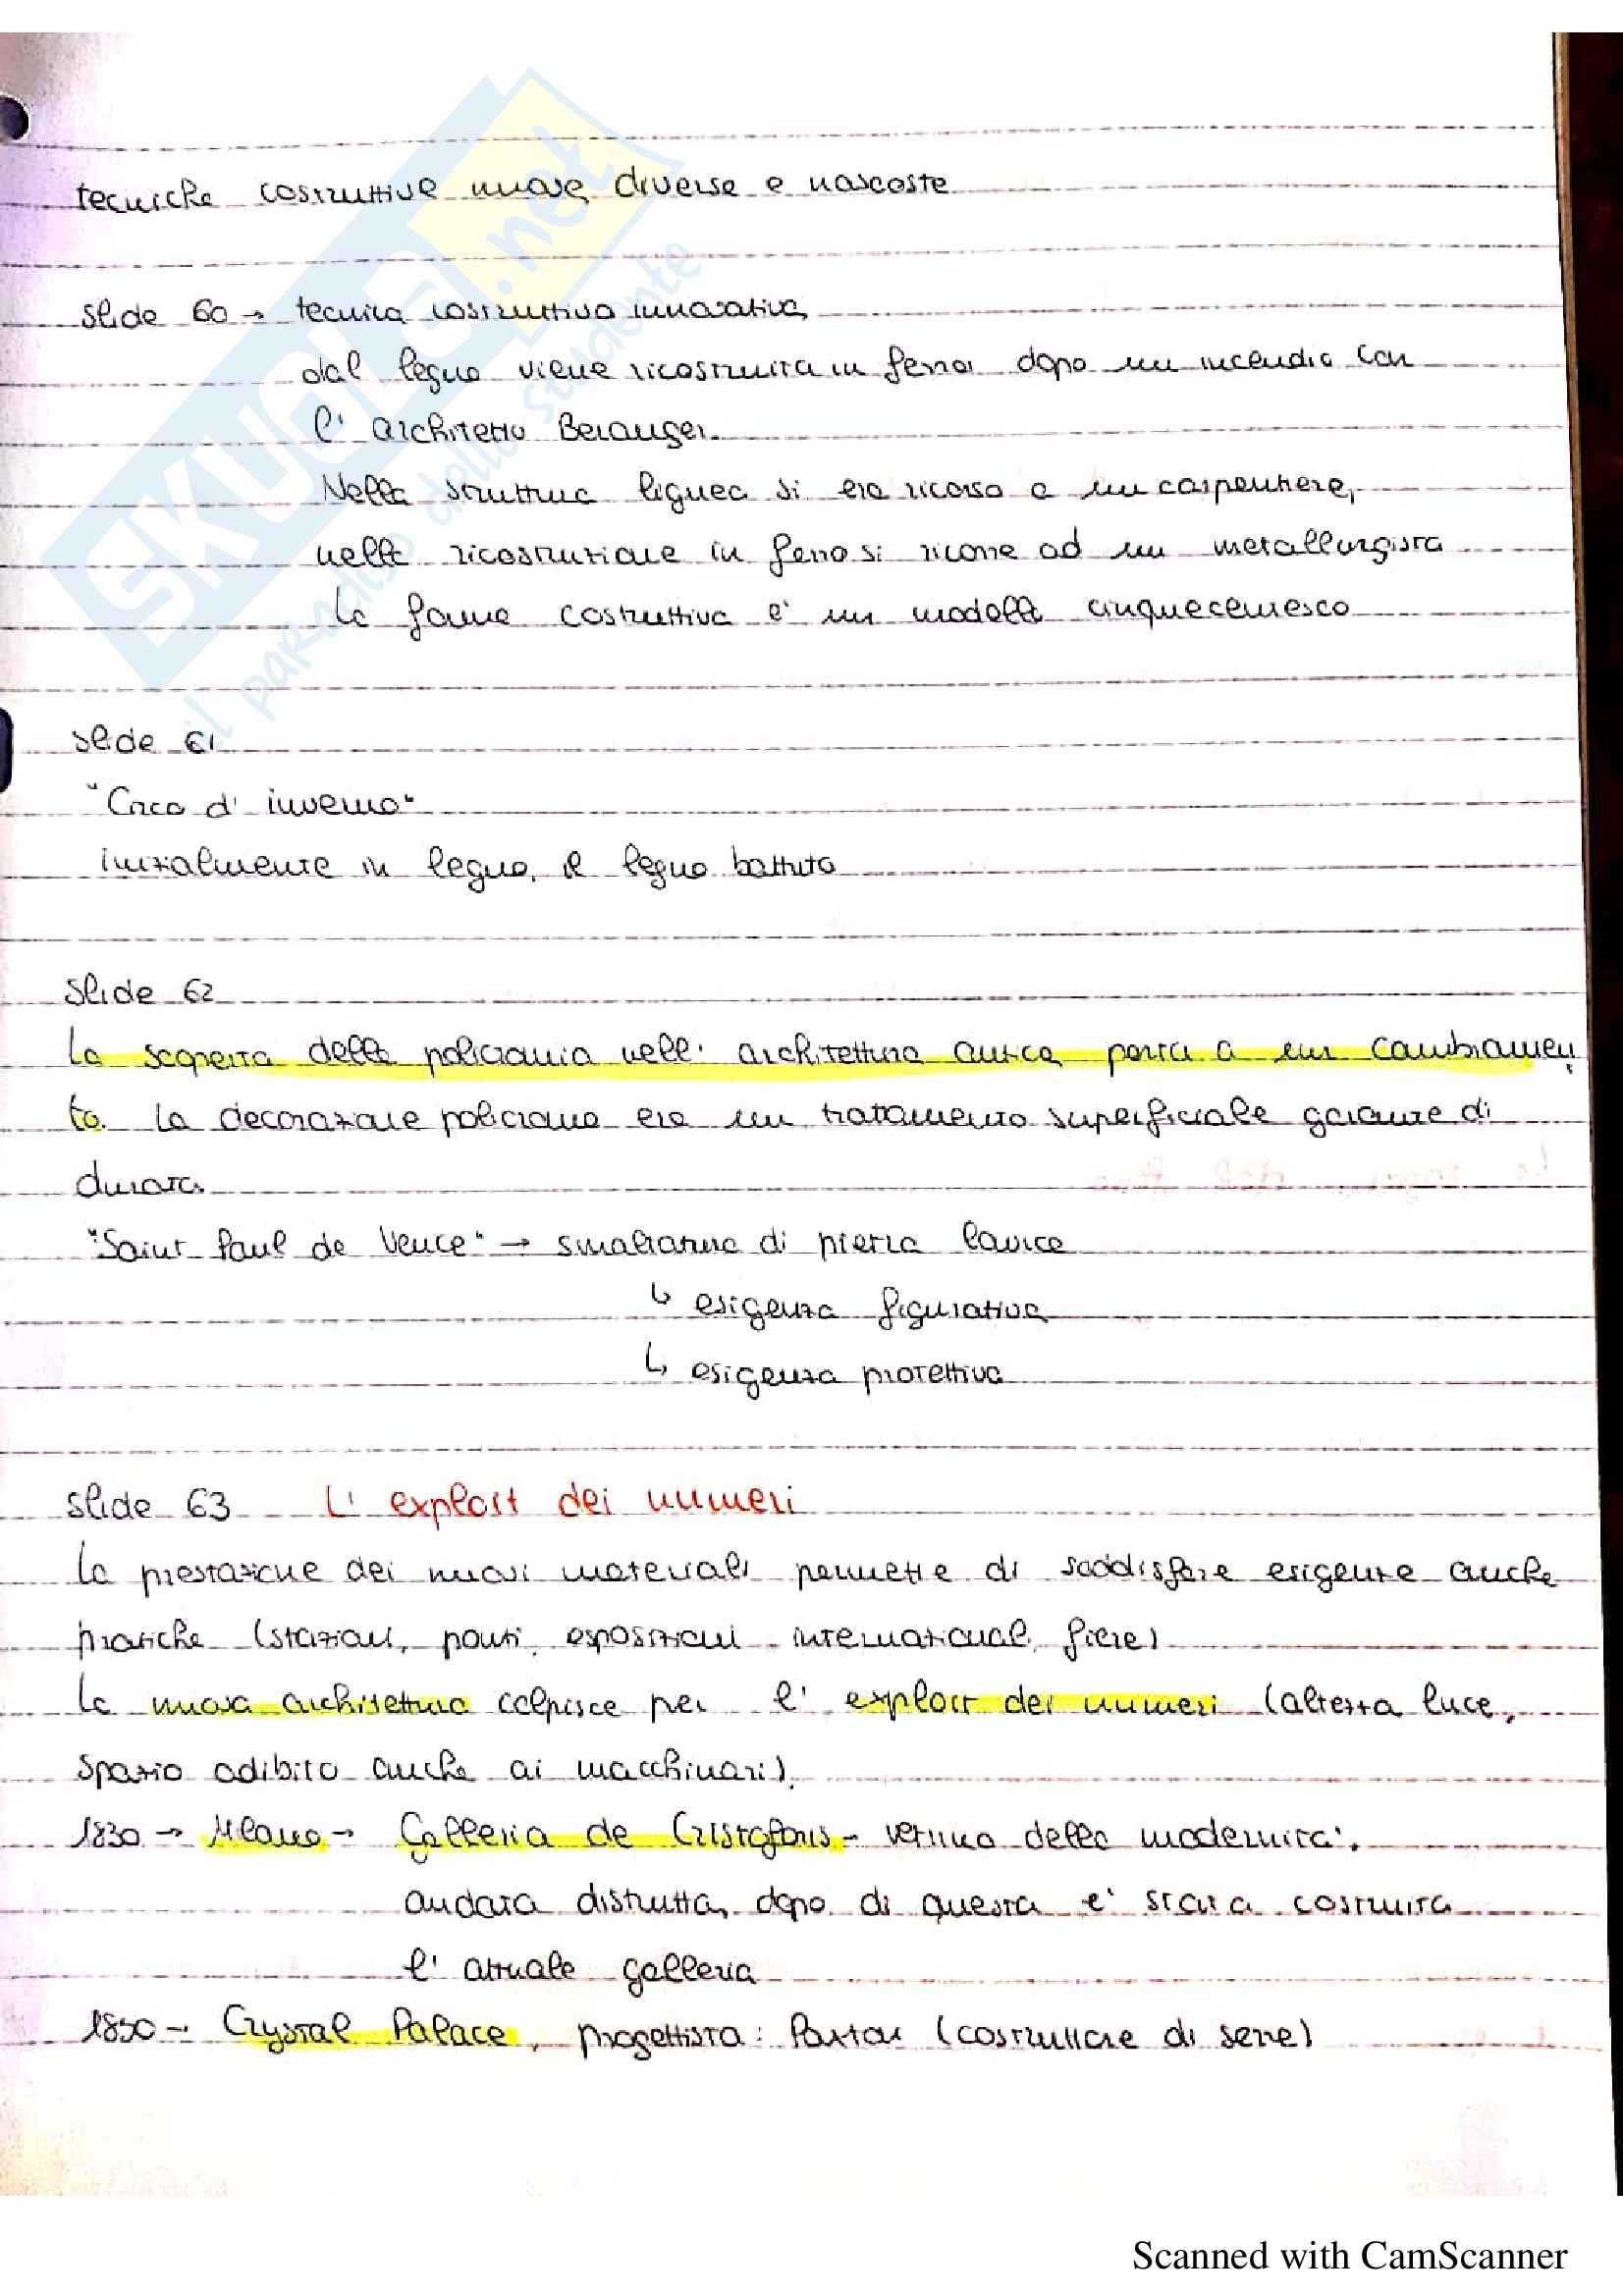 tecniche costruttive nuove, diverse e nascoste
slide 60 → tecnica costruttiva innovativa,
dal legno viene ricostruita in ferro, dopo un incendio con
l'architetto Beranger.
Nella struttura lignea si era ricorso a un carpentiere,
nella ricostruzione in ferro si ricorre ad un metallurgista
La forma costruttiva e' un modello cinquecentesco
slide 61
"Circo d'inverno"
inizialmente in legno, il legno battuto
slide 62
La scoperta della policromia nell'architettura antica porta a un cambiamen
to. La decorazione policroma era un trattamento superficiale garante di
durata.
"Saint Paul de Vence" → smaltatura di pietra lavica
↳ esigenza figurativa
↳ esigenza protettiva
slide 63 L'exploit dei numeri
La prestazione dei nuovi materiali permette di soddisfare esigenze anche
pratiche (stazioni, ponti, esposizioni internazionali, fiere)
La nuova architettura colpisce per l'exploit dei numeri (altezza luce,
spazio adibito anche ai macchinari).
1830 → Milano → Galleria de Cristoforis - vetrina della modernita'.
andata distrutta, dopo di questa e' stata costruita
l'attuale galleria
1850 → Crystal Palace, progettista: Paxton (costruttore di serre)
SKUOLA.net
il paradiso dello studente
Scanned with CamScanner